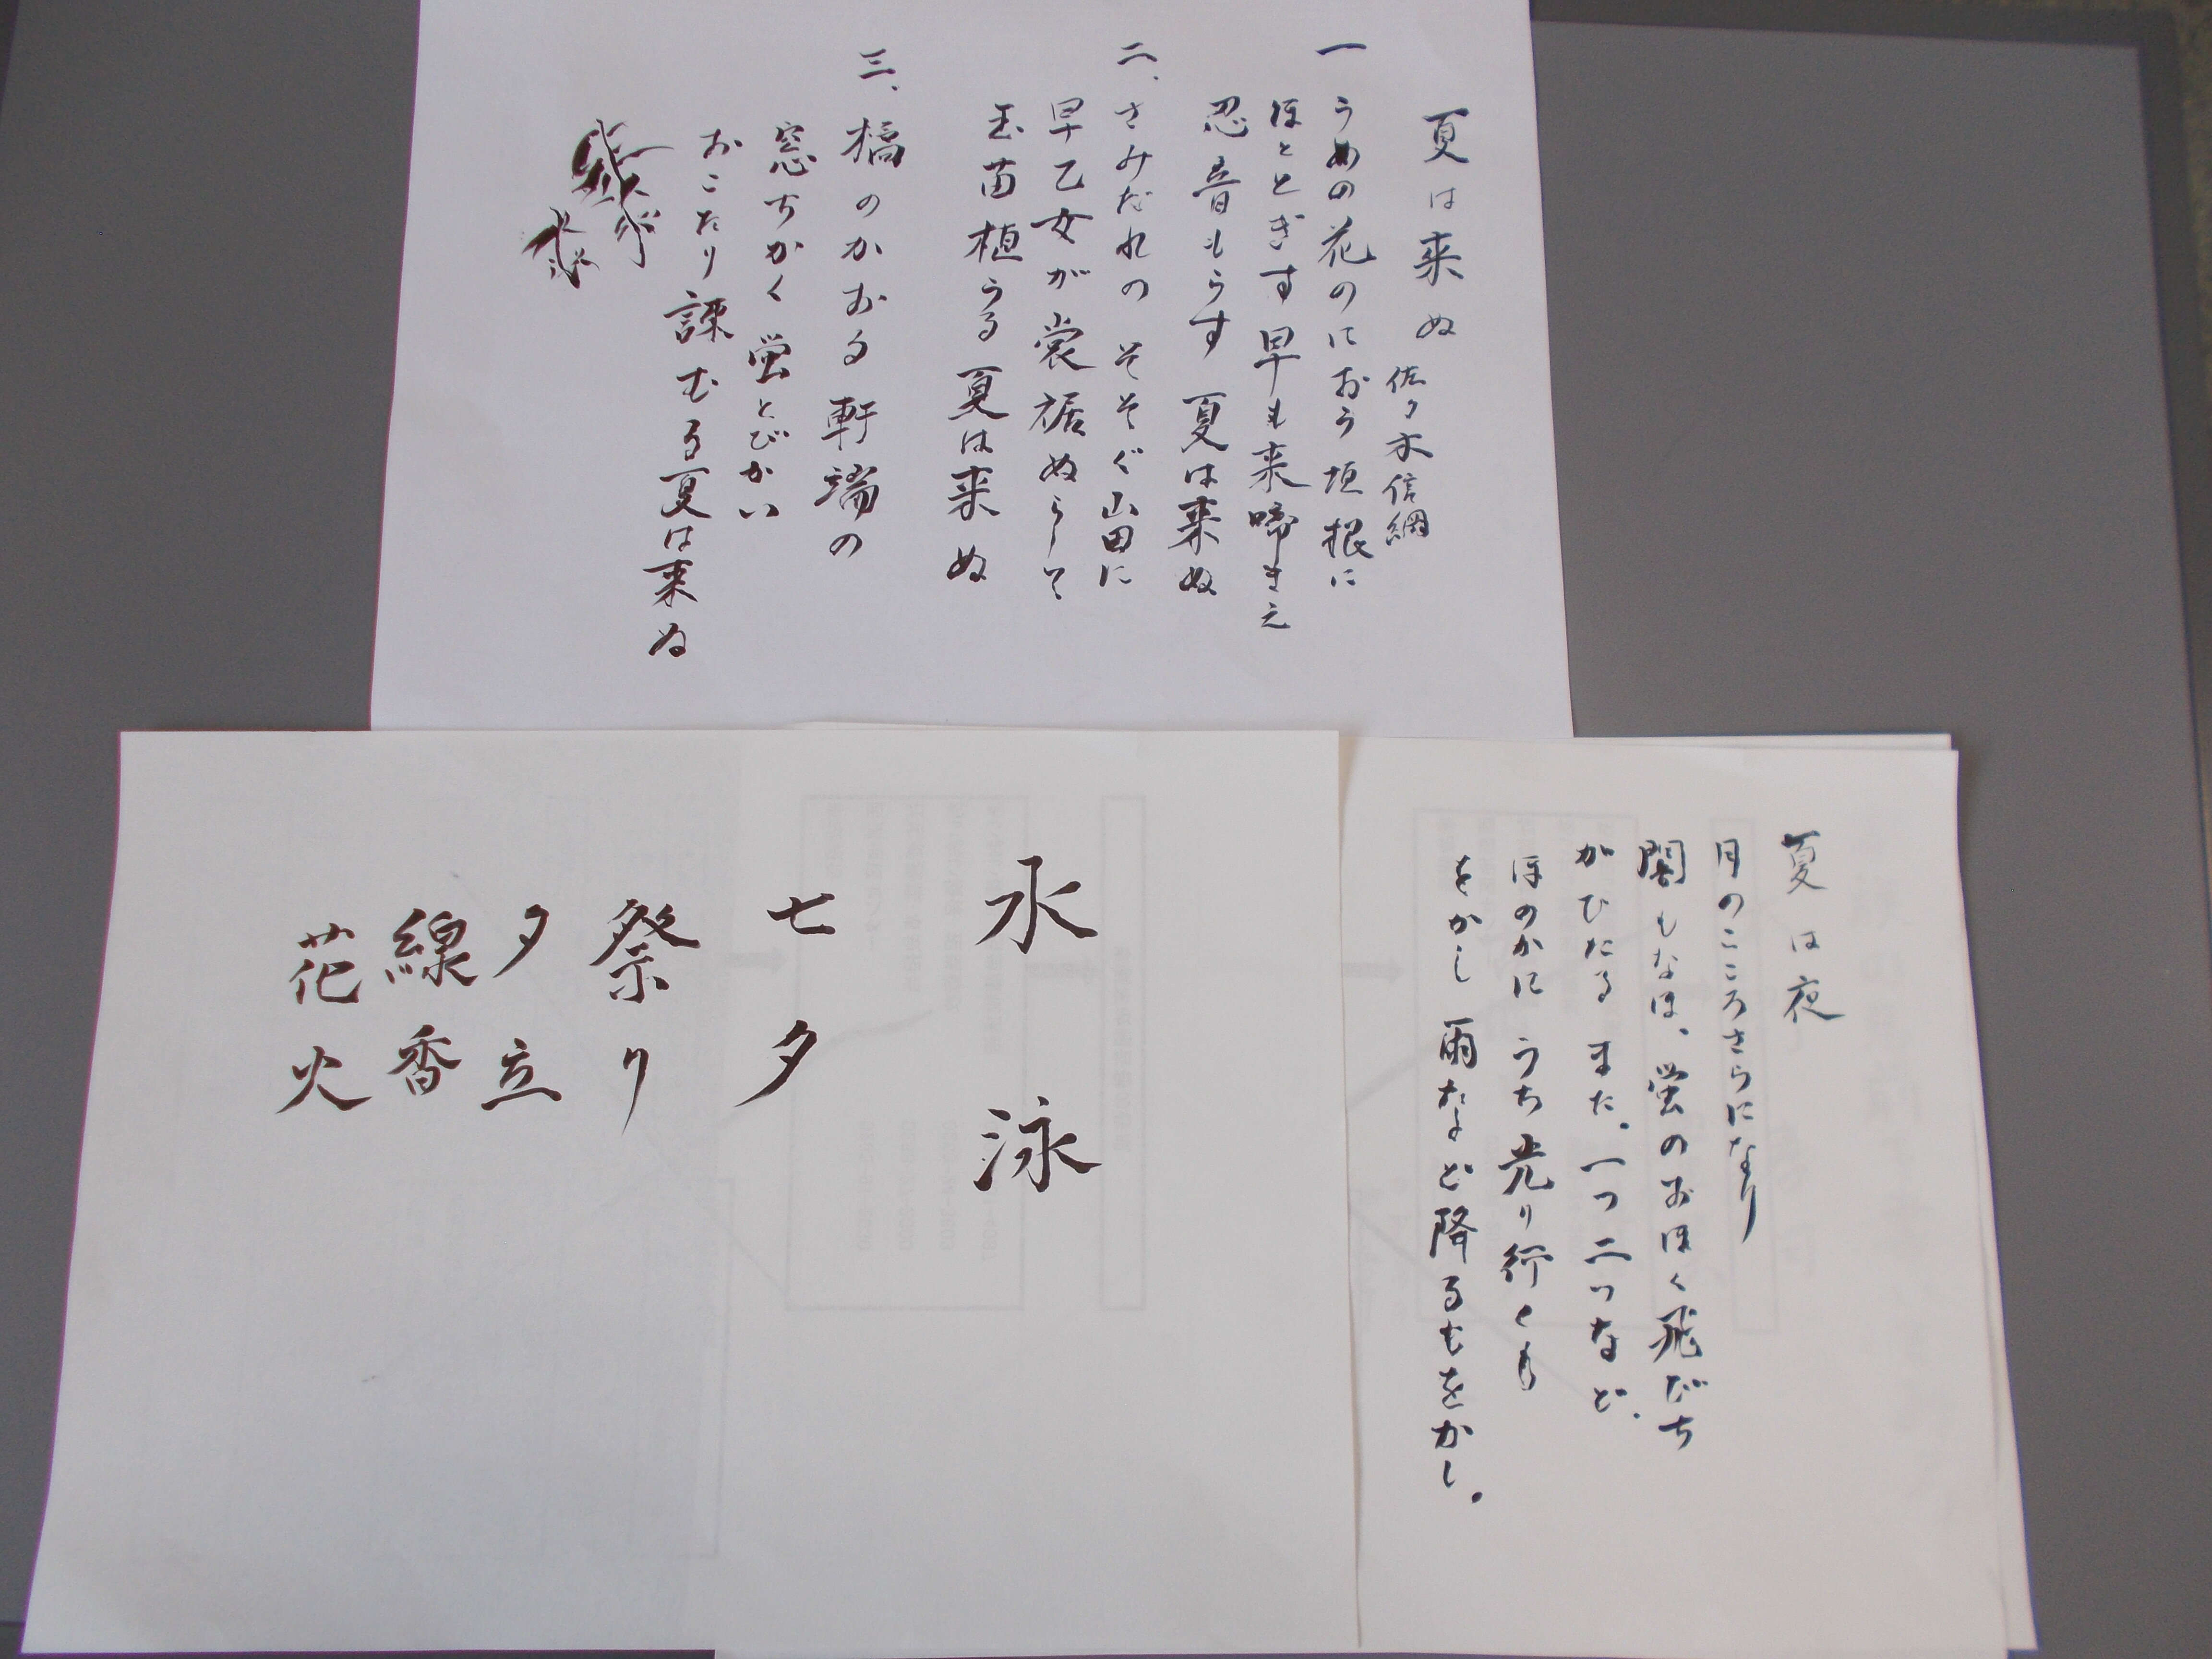 夏は来ぬ
佐々木信綱
一 うめの花のにおう垣根に
ほととぎす早も来啼きえ
忍音もらす 夏は来ぬ
二、さみだれの そそぐ山田に
早乙女が裳裾ぬらして
玉苗植うる 夏は来ぬ
三、橘のかおる軒端の
窓ちかく 蛍とびかい
おこたり諌むる夏は来ぬ
夏は夜
月のころさらになり
闇もなほ、蛍のおほく飛びち
がひたる また、一つ二つなど、
ほのかに うち光り行くも
をかし 雨など降るもをかし。
水泳
七夕
祭り
夕立
線香
花火